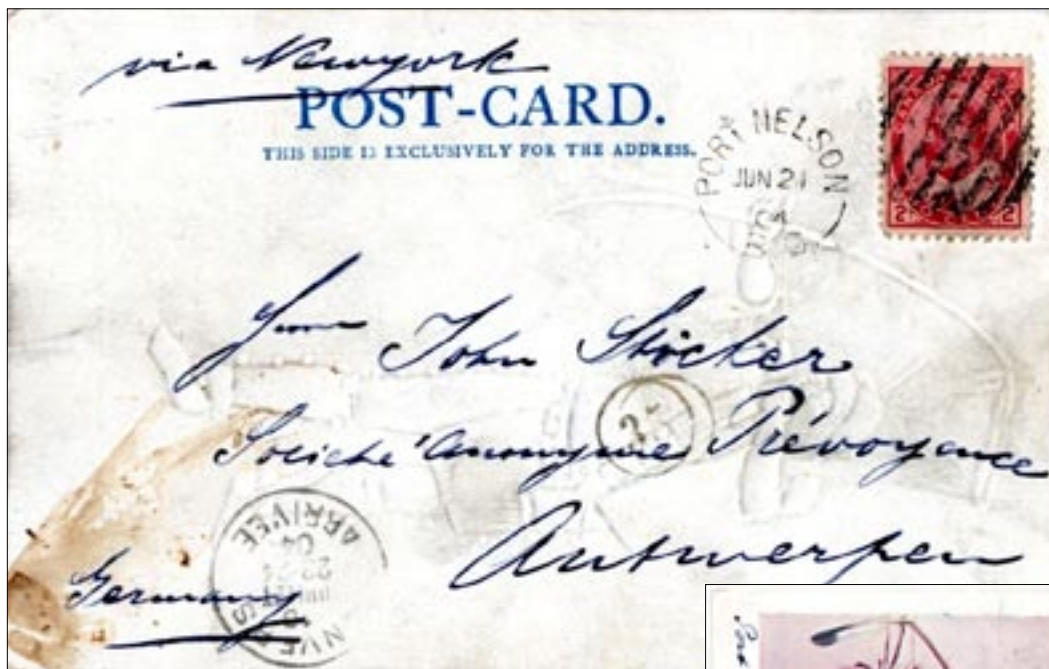 via Newyork
POST-CARD.
THIS SIDE IS EXCLUSIVELY FOR THE ADDRESS.
PORT NELSON
JUN 21
2 2
John Stöcker
Société anonyme Prévoyance
Antwerpen
Germany
ARRIVÉE
04